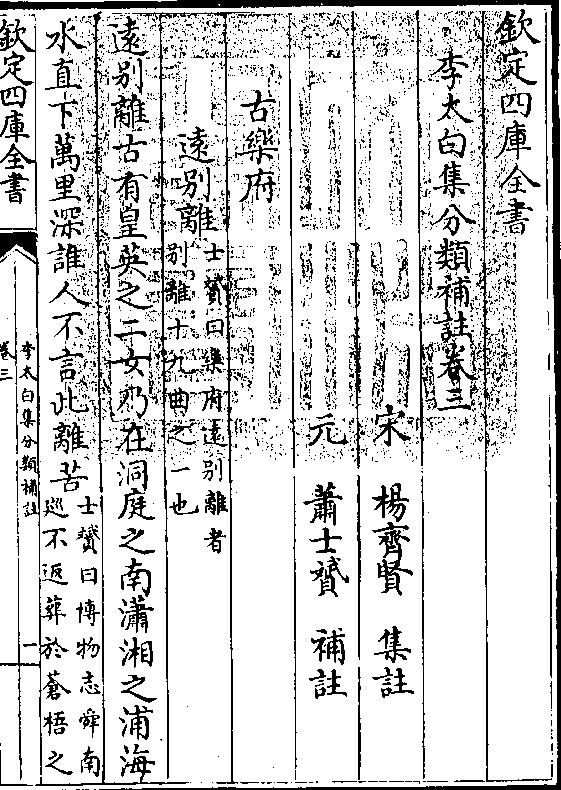 欽定四庫全書
李太白集分類補註卷三
宋 楊齊賢 集註
元 蕭士贇 補註
古樂府
遠別離士贇曰樂府遠別離者
別離十九曲之一也
遠別離古有皇英之二女乃在洞庭之南瀟湘之浦海
水直下萬里深誰人不言此離苦士贇曰博物志舜南
巡不返葬於蒼梧之
欽定四庫全書
李太白集分類補註
卷三
一